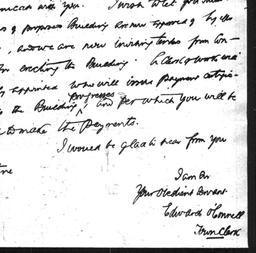 with you.
proposed Building as now approved by the
, as we are now inviting tenders from Con-
for erecting the Building. A Clerk of works
appointed who will issue payment certifi-
progresses
the Building, and for which you will be
to make the payments.
I would be glad to hear from you
I am Sir
Your Obedient Servant
Edward O'Connell
Town Clerk